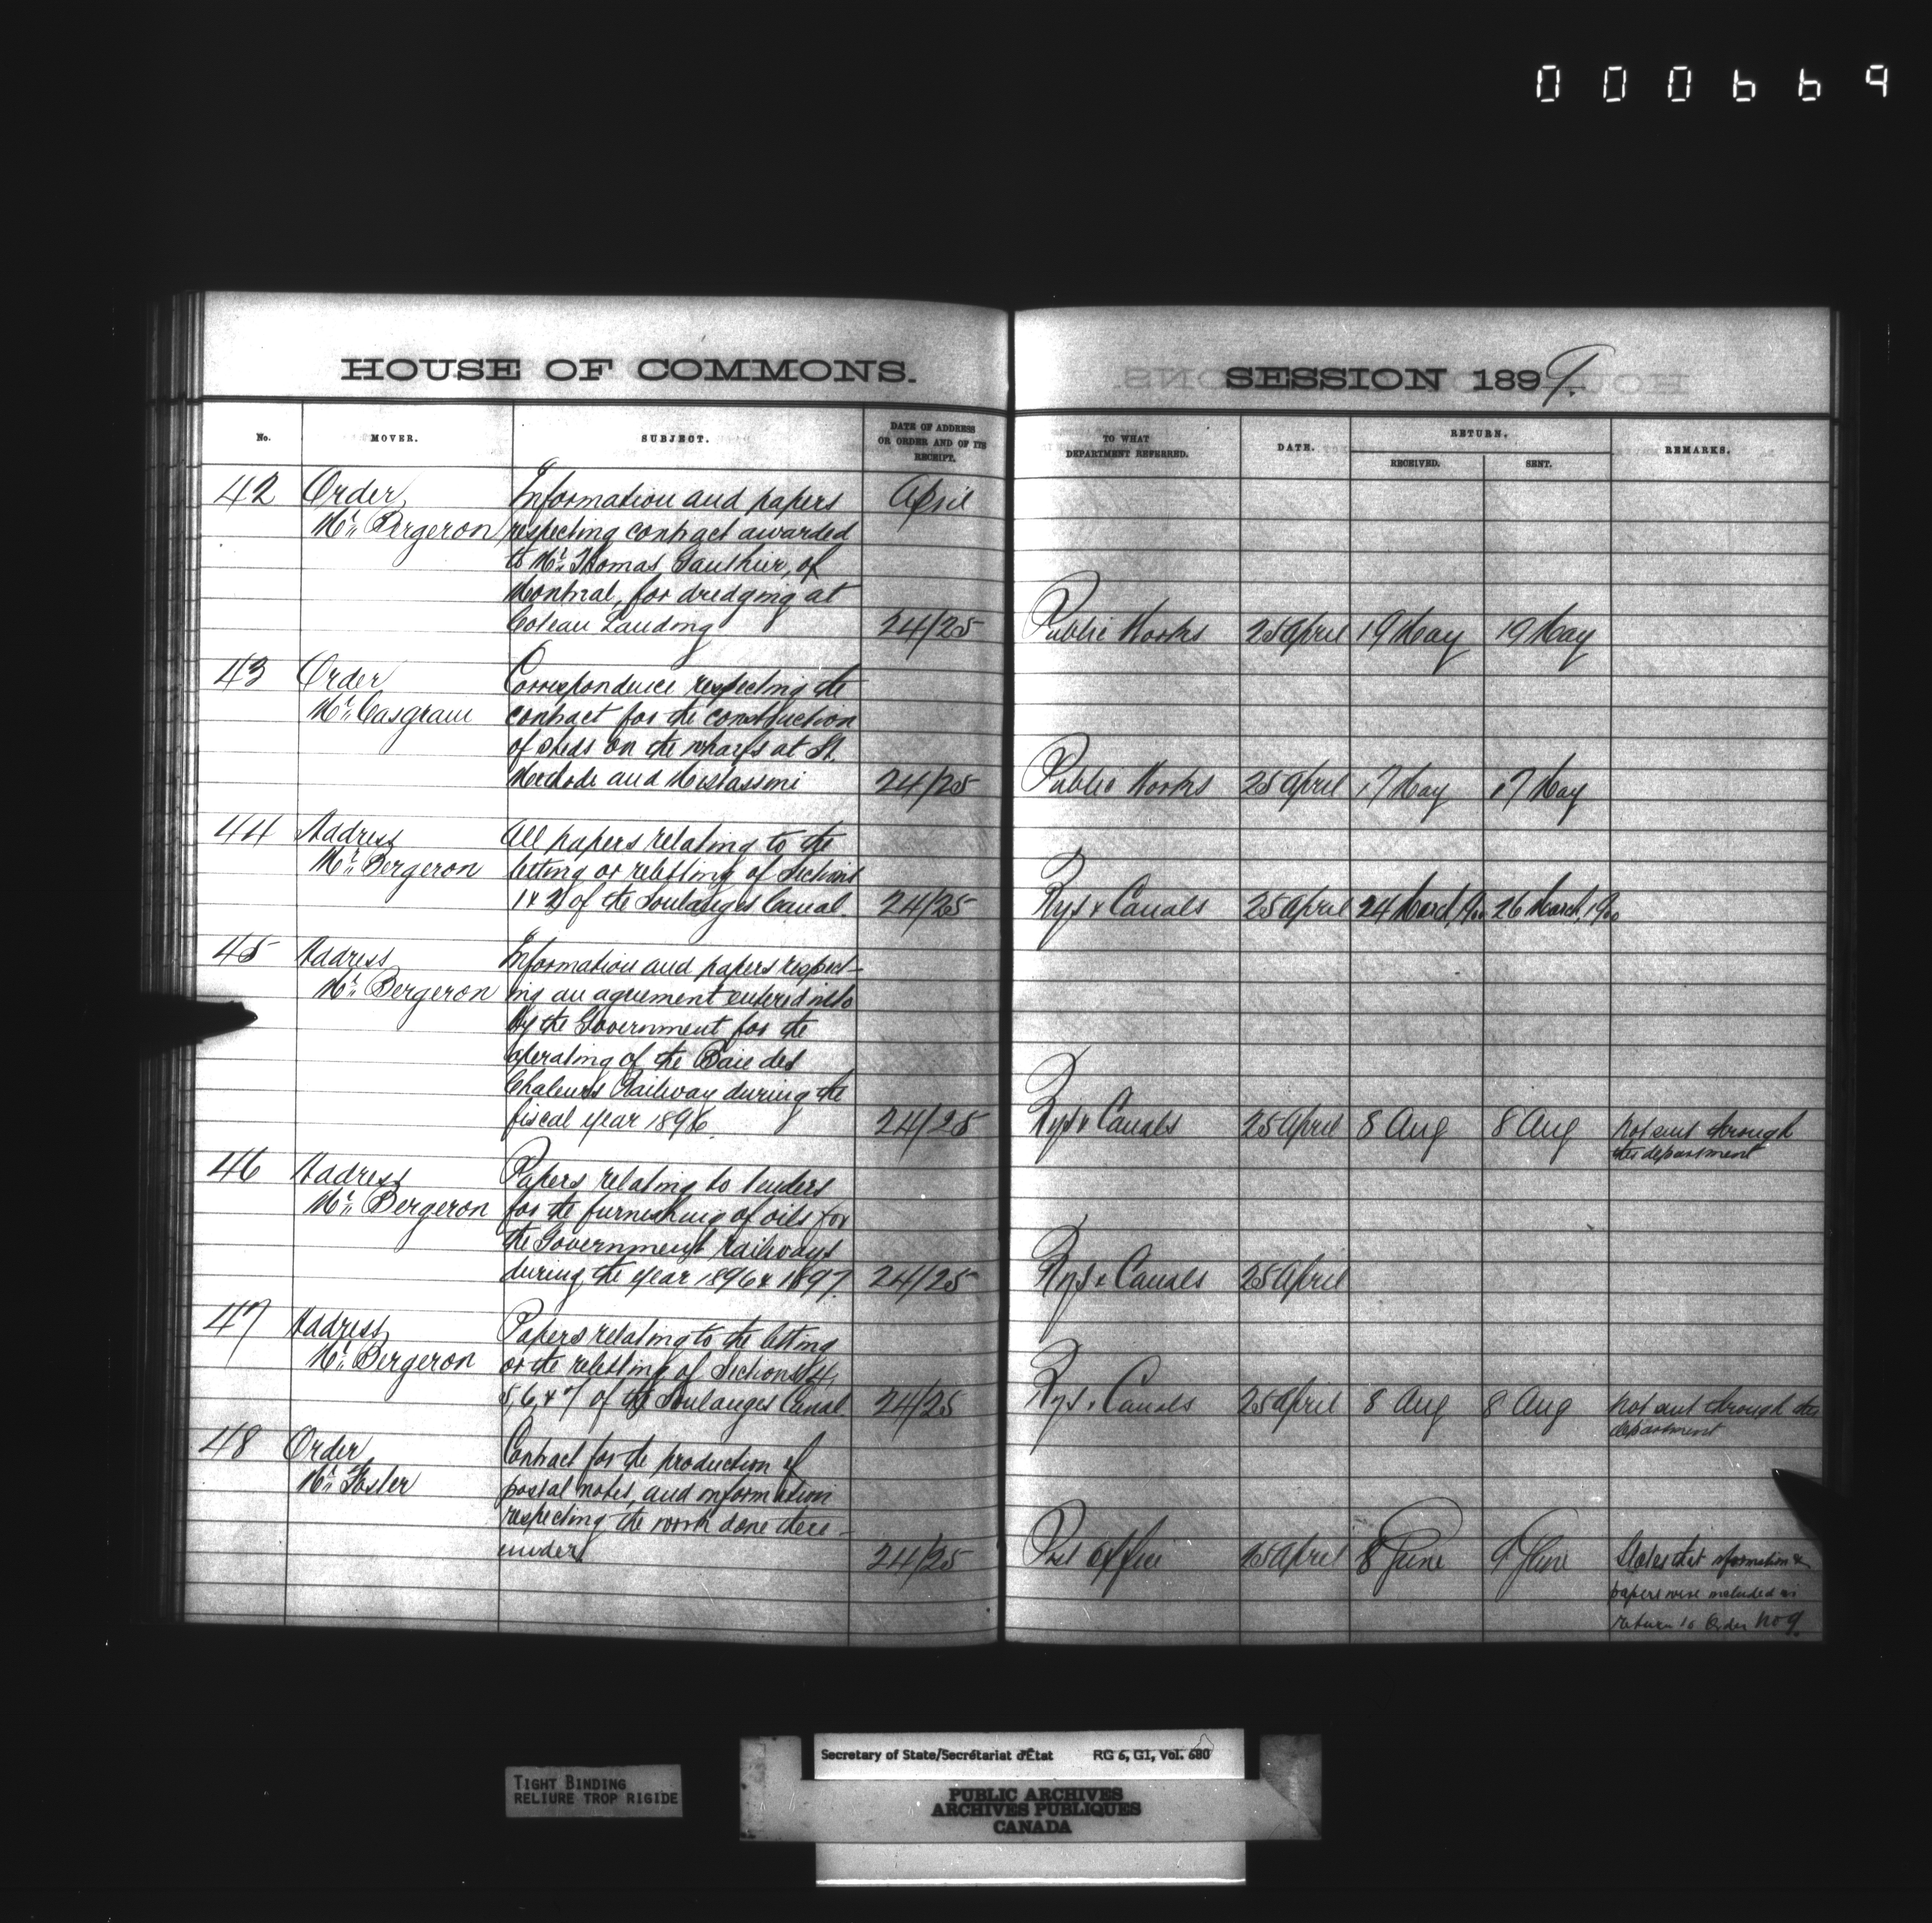 000669
HOUSE OF COMMONS.
SESSION 1899.
No.
MOVER.
SUBJECT.
DATE OF ADDRESS
OR ORDER AND OF ITS
RECEIPT.
TO WHAT
DEPARTMENT REFERRED.
DATE.
RETURN.
RECEIVED.
SENT.
REMARKS.
42 Order Information and papers April
Mr. Bergeron respecting contract awarded
to Mr. Thomas Gauthier, of
Montreal, for dredging at
Coteau Landing 24/25 Public Works 25 April 19 May 19 May
43 Order Correspondence respecting the
Mr. Casgrain contract for the construction
of sheds on the wharfs at St.
Methode and Mistassini 24/25 Public Works 25 April 17 May 17 May
44 Address All papers relating to the
Mr. Bergeron letting or reletting of Sections
1 & 2 of the Soulanges Canal. 24/25 Rys & Canals 25 April 24 March, 1900 26 March, 1900
45 Address Information and papers respect-
Mr. Bergeron ing an agreement entered into
by the Government for the
operating of the Baie des
Chaleurs Railway during the
fiscal year 1896. 24/25 Rys & Canals 25 April 8 Aug 8 Aug Not sent through
this department
46 Address Papers relating to tenders
Mr. Bergeron for the furnishing of oils for
the Government railways
during the year 1896 & 1897. 24/25 Rys & Canals 25 April
47 Address Papers relating to the letting
Mr. Bergeron or the reletting of Sections 4,
5, 6, & 7 of the Soulanges Canal. 24/25 Rys & Canals 25 April 8 Aug 8 Aug Not sent through this
department
48 Order Contract for the production of
Mr. Foster postal notes, and information
respecting the work done there-
under 24/25 Post Office 25 April 8 June 9 June States that information &
papers were included in
return to Order No 9.
TIGHT BINDING
RELIURE TROP RIGIDE
Secretary of State/Secrétariat d'État RG 6, G1, Vol. 680
PUBLIC ARCHIVES
ARCHIVES PUBLIQUES
CANADA